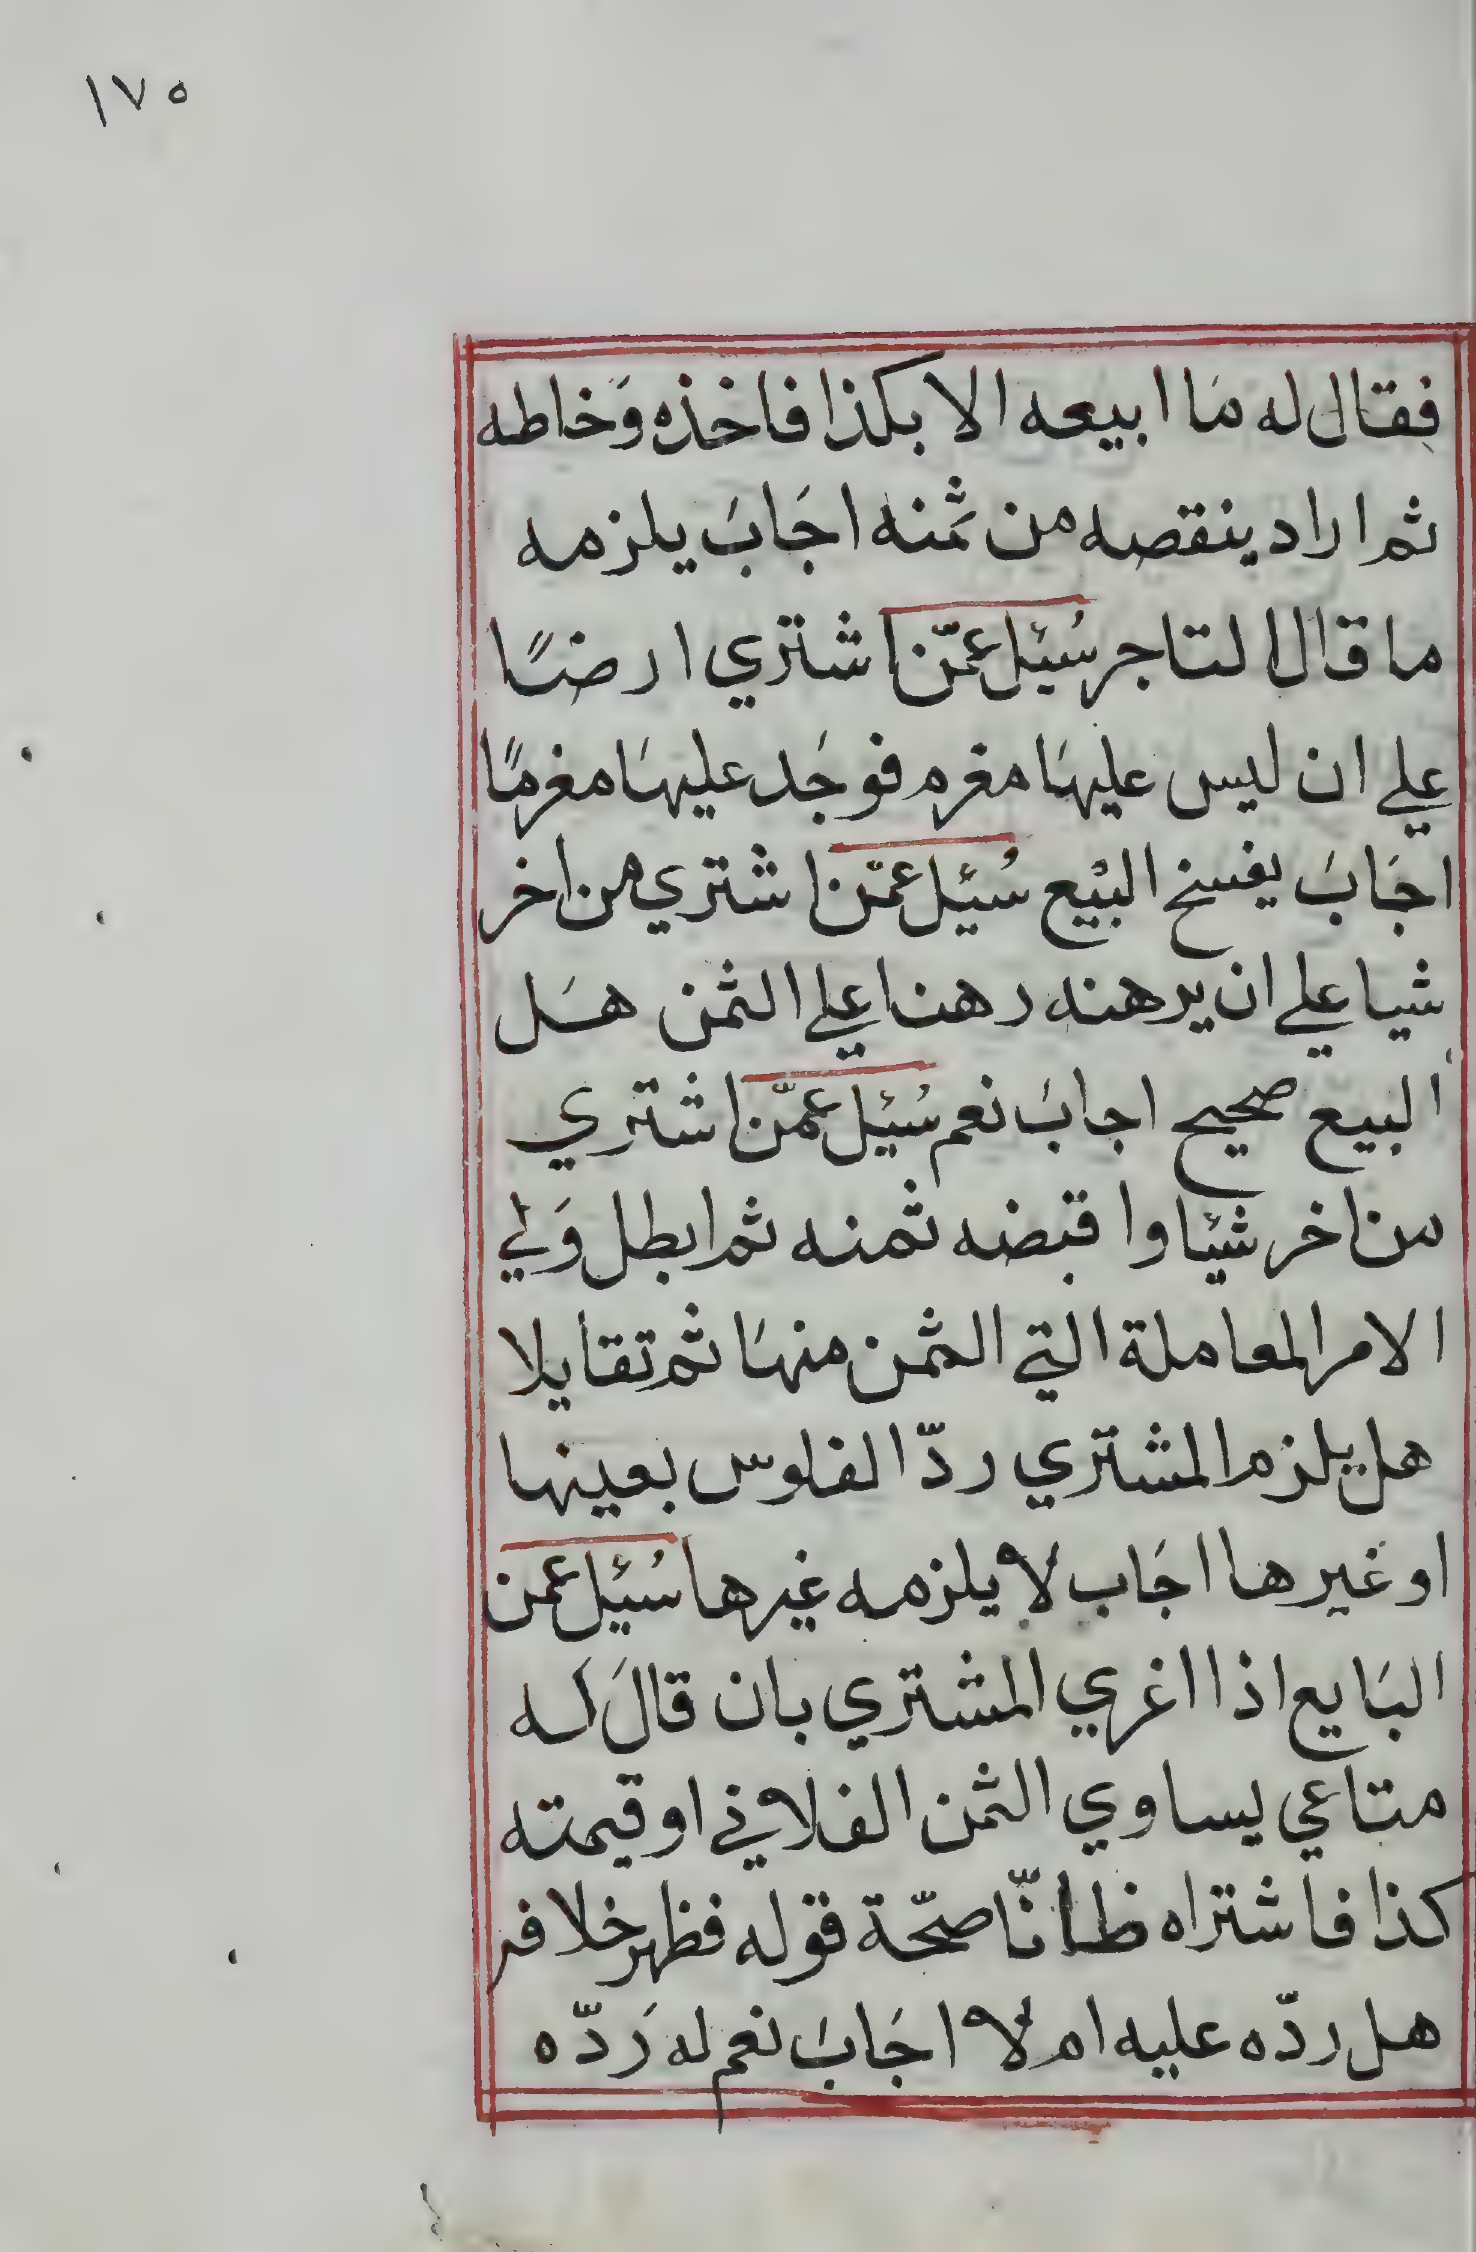 ١٧٥
فقال له مَا ابيعه الا بكذا فاخذه وَخاطه
ثم اراد ينقصه من ثَمنه اجَابَ يلزمه
ما قال التاجر سُئِل عمّن اشتري ارضًا
علي ان ليس عليهَا مغرم فوجَد عليهَا مغرمًا
اجَابَ يفسخ البيْع سُئِل عمّن اشتري من اخر
شيا علي ان يرهنه رهنا علي الثمن هَل
البيع صحيح اجابَ نعم سُئِل عمّن اشتري
من اخر شيئا واقبضه ثمنه ثم ابطل وَلي
الامر المعاملة التي الثمن منهَا ثم تقايلا
هل يلزم المشتري ردّ الفلوس بعينها
او غيرها اجَاب لا يلزمه غيرها سُئِل عمن
البَايع اذا اغري المشتري بان قالَ لَه
متاعي يساوي الثمن الفلاني او قيمته
كذا فاشتراه ظانّا صحّة قوله فظهر خلافه
هل ردّه عليه ام لا اجَابَ نعم له رَدّه